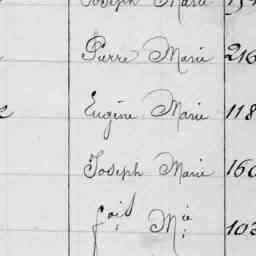 Joseph Marie
Pierre Marie 216
Eugène Marie 118
Joseph Marie 160
Mie 103